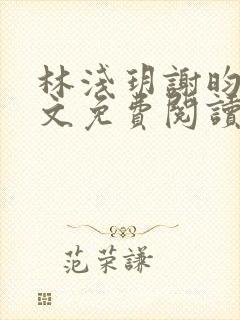 林淺玥謝昀
文免費閱讀
范荣謙